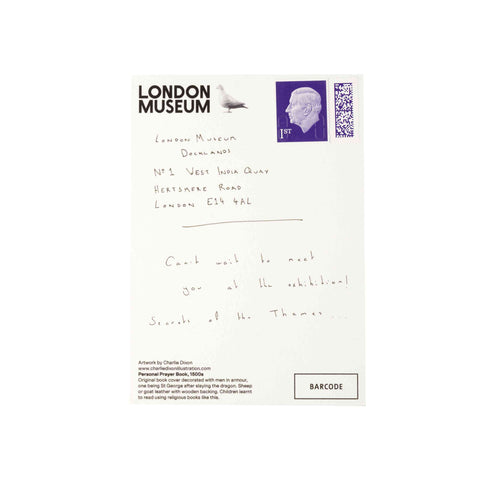 LONDON
MUSEUM
1ST
LONDON MUSEUM
DOCKLANDS
Nº 1 WEST INDIA QUAY
HERTSMERE ROAD
LONDON E14 4AL
Can't wait to meet
you at the exhibition!
Secrets of the Thames...
Artwork by Charlie Dixon
www.charliedixonillustration.com
Personal Prayer Book, 1500s
Original book cover decorated with men in armour,
one being St George after slaying the dragon. Sheep
or goat leather with wooden backing. Children learnt
to read using religious books like this.
BARCODE